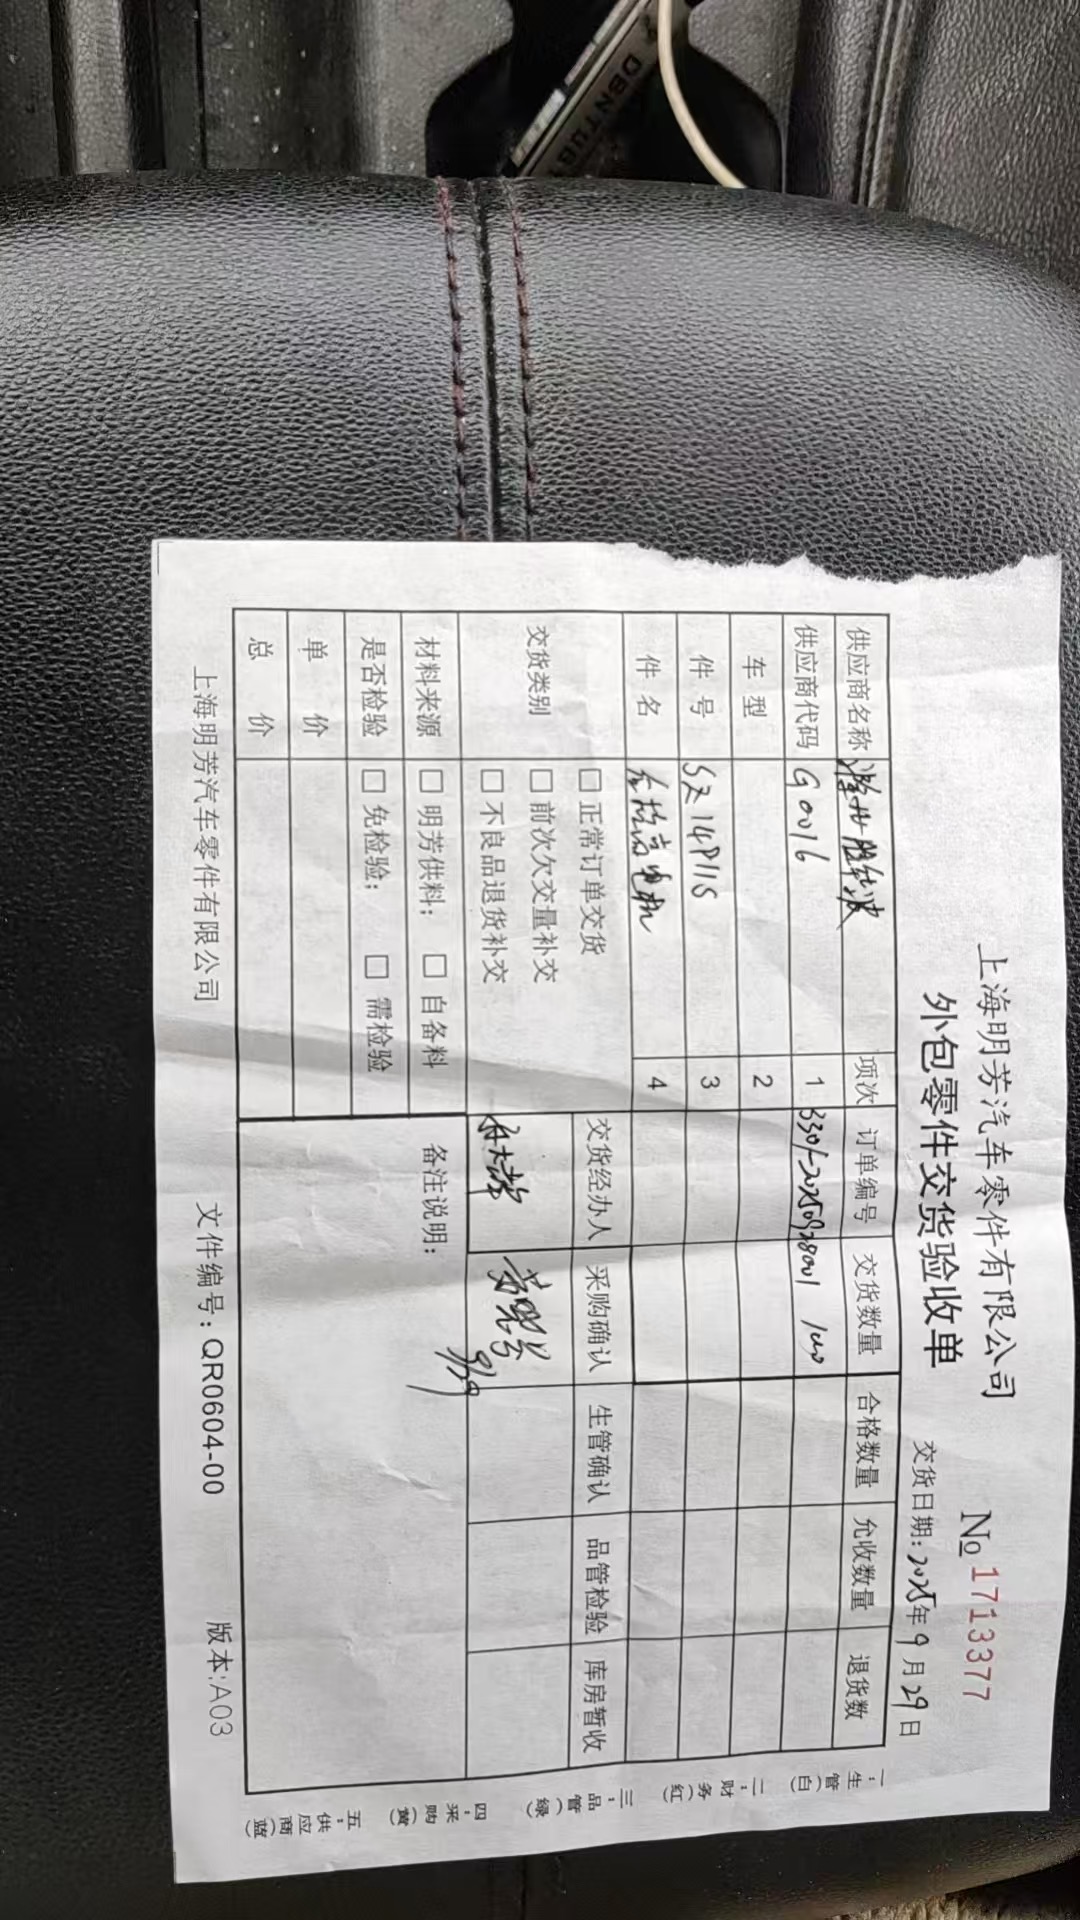 DBNTUB
上海明芳汽车零件有限公司
№ 1713377
外包零件交货验收单
交货日期：2025年9月29日
供应商名称 项次 订单编号 交货数量 合格数量 允收数量 退货数
供应商代码 G0016 1 3301-20250928001 100
车型 2
件号 SZ14P11S 3
件名 4
交货类别
□正常订单交货
□前次欠交量补交
□不良品退货补交
交货经办人 采购确认 生管确认 品管检验 库房暂收
9/29
材料来源 □明芳供料； □自备料
备注说明：
是否检验 □免检验； □需检验
单价
总价
上海明芳汽车零件有限公司 文件编号：QR0604-00 版本:A03
一：生管（白）
二：财务（红）
三：品管（绿）
四：采购（黄）
五：供应商（蓝）